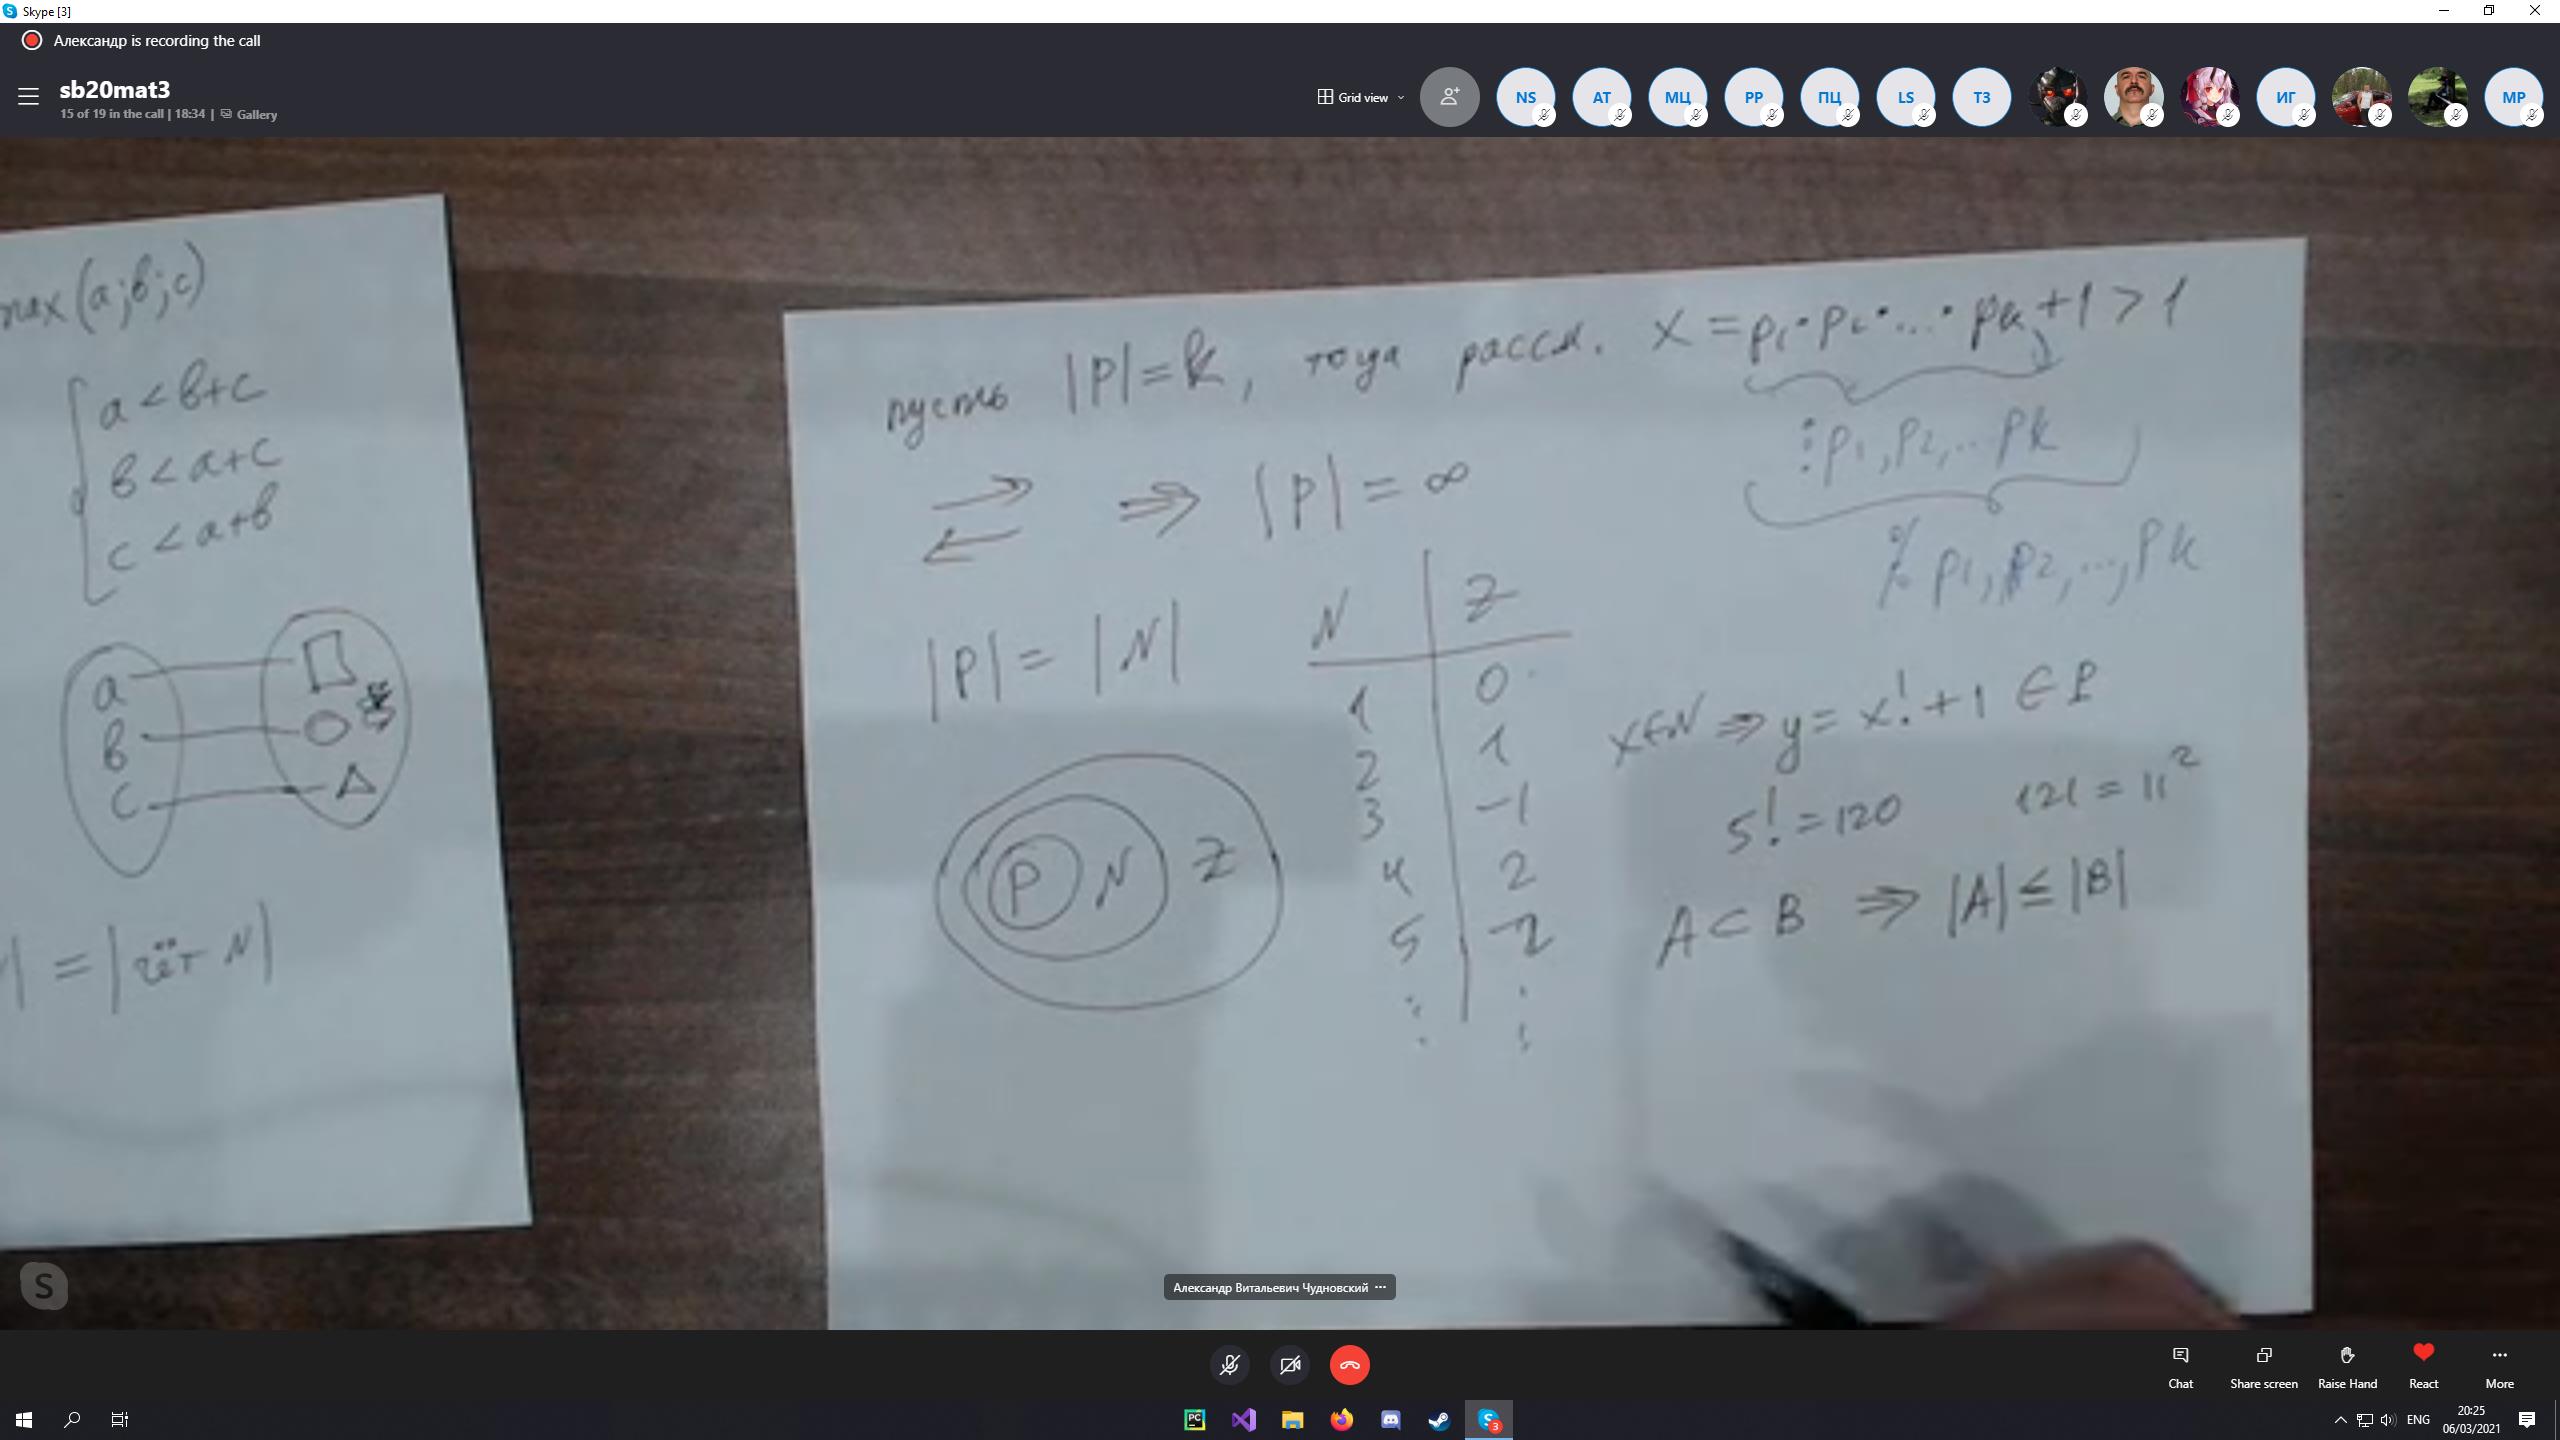 Skype [3]
Александр is recording the call
sb20mat3
15 of 19 in the call | 18:34 | Gallery
Grid view
NS
AT
МЦ
PP
ПЦ
LS
ТЗ
ИГ
MP
max(a;b;c)
a < b+c
b < a+c
c < a+b
a
b
c
| = |чёт N|
пусть |P|=k, тогда рассм. x = p₁·p₂·...·pₖ+1 > 1
⋮ p₁, p₂, .. pk
⇒ |P| = ∞
p1, p2, ..., pk
|P| = |N|
N | Z
1 | 0
2 | 1
3 | -1
4 | 2
5 | -2
⋮ | ⋮
P N Z
x∈N ⇒ y = x!+1 ∈ P
5! = 120 121 = 11²
A ⊂ B ⇒ |A| ≤ |B|
Александр Витальевич Чудновский ···
S
Chat
Share screen
Raise Hand
React
More
PC
3
ENG
20:25
06/03/2021